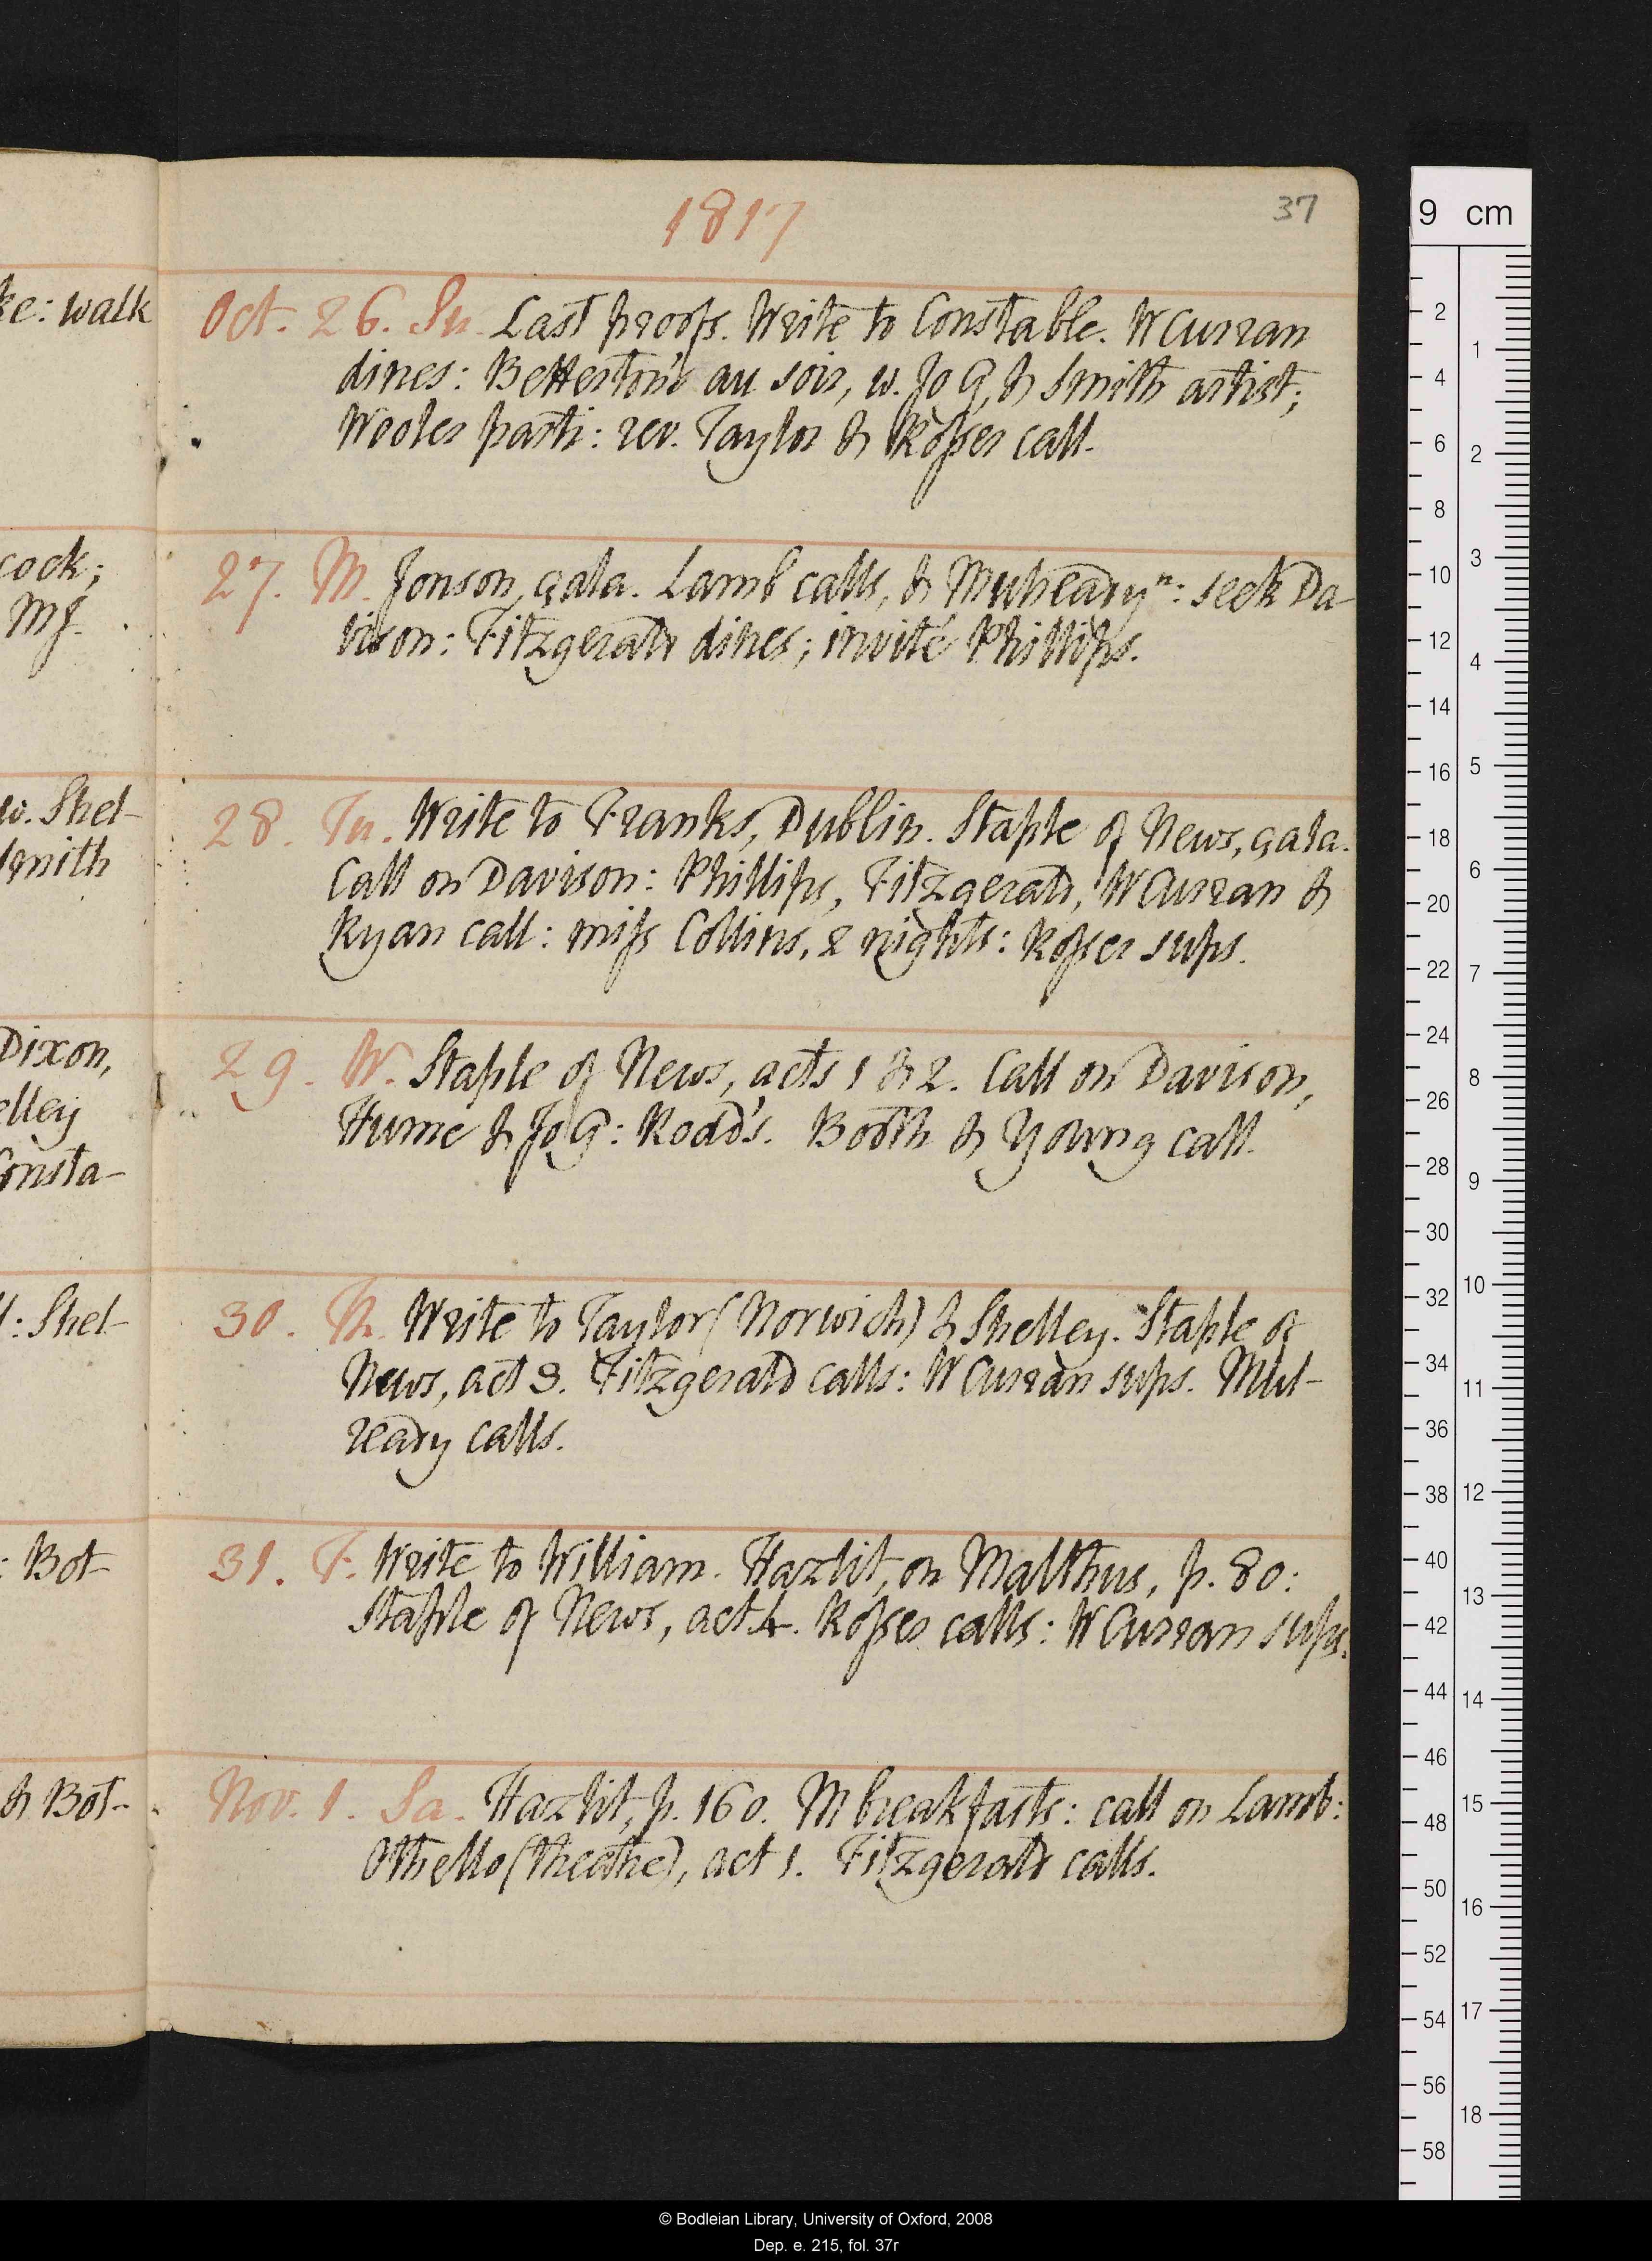 1817
37
ke: walk
Oct. 26. Su. Last proofs. Write to Constable. W Curran
dines: Betterton's au soir, w. Jo G, & Smith artist;
Wooler parti: rev. Taylor & Rosser call.
cock;
MJ.
27. M. Jonson, gala. Lamb calls, & Mulreadyⁿ: seek Da-
vison: Fitzgerald dines; invité Phillips.
w. Shel-
Smith
28. Tu. Write to Franks, Dublin. Staple of News, gala.
Call on Davison: Phillips, Fitzgerald, W Curran &
Ryan call: miss Collins, 2 nights: Rosser sups.
Dixon,
elley
Consta-
29. W. Staple of News, acts 1 & 2. Call on Davison,
Hume & Jo G: Rodd's. Booth & Young call.
l: Shel-
30. Th. Write to Taylor (Norwich) & Shelley. Staple of
News, act 3. Fitzgerald calls: W Curran sups. Mul-
ready calls.
: Bot-
31. F. Write to William. Hazlit, on Malthus, p. 80:
Staple of News, act 4. Rosser calls: W Curran sups.
& Bot-
Nov. 1. Sa. Hazlit, p. 160. M breakfasts: call on Lamb:
Othello (theatre), act 1. Fitzgerald calls.
9 cm
2
4
6
8
10
12
14
16
18
20
22
24
26
28
30
32
34
36
38
40
42
44
46
48
50
52
54
56
58
1
2
3
4
5
6
7
8
9
10
11
12
13
14
15
16
17
18
© Bodleian Library, University of Oxford, 2008
Dep. e. 215, fol. 37r